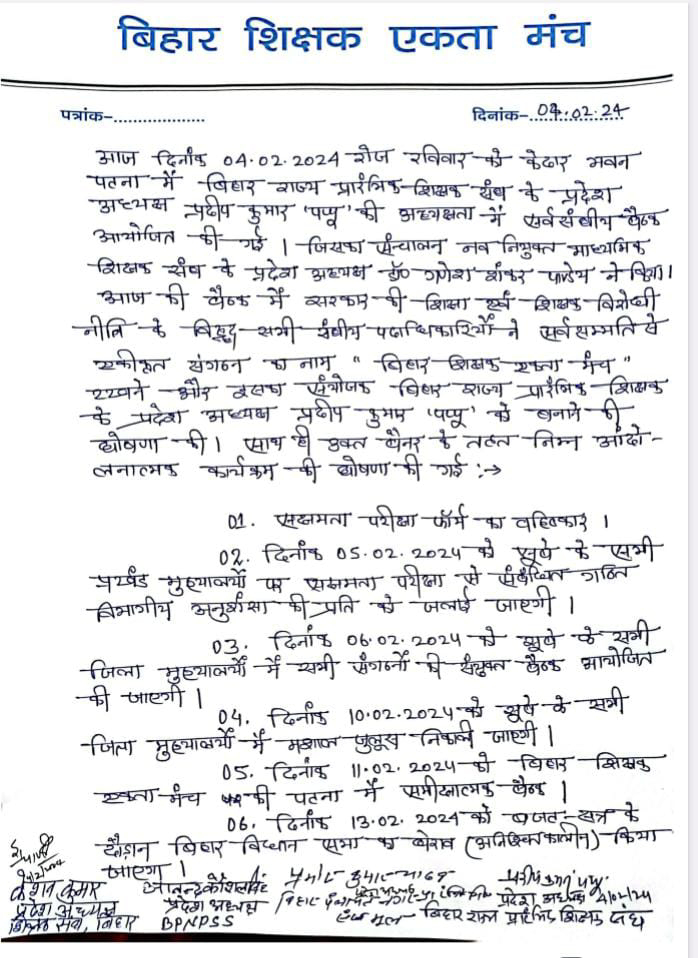 बिहार शिक्षक एकता मंच
पत्रांक-.................... दिनांक-..04.02.24..
आज दिनांक 04.02.2024 रोज रविवार को केदार भवन
पटना में बिहार राज्य प्रारंभिक शिक्षक संघ के प्रदेश
अध्यक्ष प्रदीप कुमार 'पप्पू' की अध्यक्षता में सर्वसंघीय बैठक
आयोजित की गई । जिसका संन्चालन नव नियुक्त माध्यमिक
शिक्षक संघ के प्रदेश अध्यक्ष डॉ० गणेश शंकर पाण्डेय ने किया।
आज की बैठक में सरकार की शिक्षा एवं शिक्षक विरोधी
नीति के विरुद्ध सभी संघीय पदाधिकारियों ने सर्वसम्मति से
एकीकृत संगठन का नाम " बिहार शिक्षक एकता मंच "
रखने और इसका संयोजक बिहार राज्य प्रारंभिक शिक्षक
के प्रदेश अध्यक्ष प्रदीप कुमार 'पप्पू' को बनाने की
घोषणा की । साथ ही उक्त बैनर के तहत निम्न आंदो-
लनात्मक कार्यक्रम की घोषणा की गई :->
01. सक्षमता परीक्षा फॉर्म का वहिष्कार ।
02. दिनांक 05.02.2024 को सूबे के सभी
प्रखंड मुख्यालयों पर सक्षमता परीक्षा से संबंधित गठित
विभागीय अनुशंसा की प्रति को जलाई जाएगी ।
03. दिनांक 06.02.2024 को सूबे के सभी
जिला मुख्यालयों में सभी संगठनों की संयुक्त बैठक आयोजित
की जाएगी ।
04. दिनांक 10.02.2024 को सूबे के सभी
जिला मुख्यालयों में मशाल जुलूस निकाली जाएगी ।
05. दिनांक 11.02.2024 को बिहार शिक्षक
एकता मंच की पटना में समीक्षात्मक बैठक ।
06. दिनांक 13.02.2024 को बजट-सत्र के
दौड़ान बिहार विधान सभा का घेराव (अनिश्चितकालीन) किया
जाएगा ।
केशव कुमार
प्रदेश अध्यक्ष
शिक्षक संघ, बिहार
आनन्द कौशल सिंह
प्रदेश अध्यक्ष
BPNPSS
प्रमोद कुमार यादव
प्रदेश अध्यक्ष
बिहार पंचायत नगर प्रा० शिक्षक संघ
मूल
प्रदीप कुमार पप्पू
प्रदेश अध्यक्ष 4/02/24
बिहार राज्य प्रारंभिक शिक्षक संघ